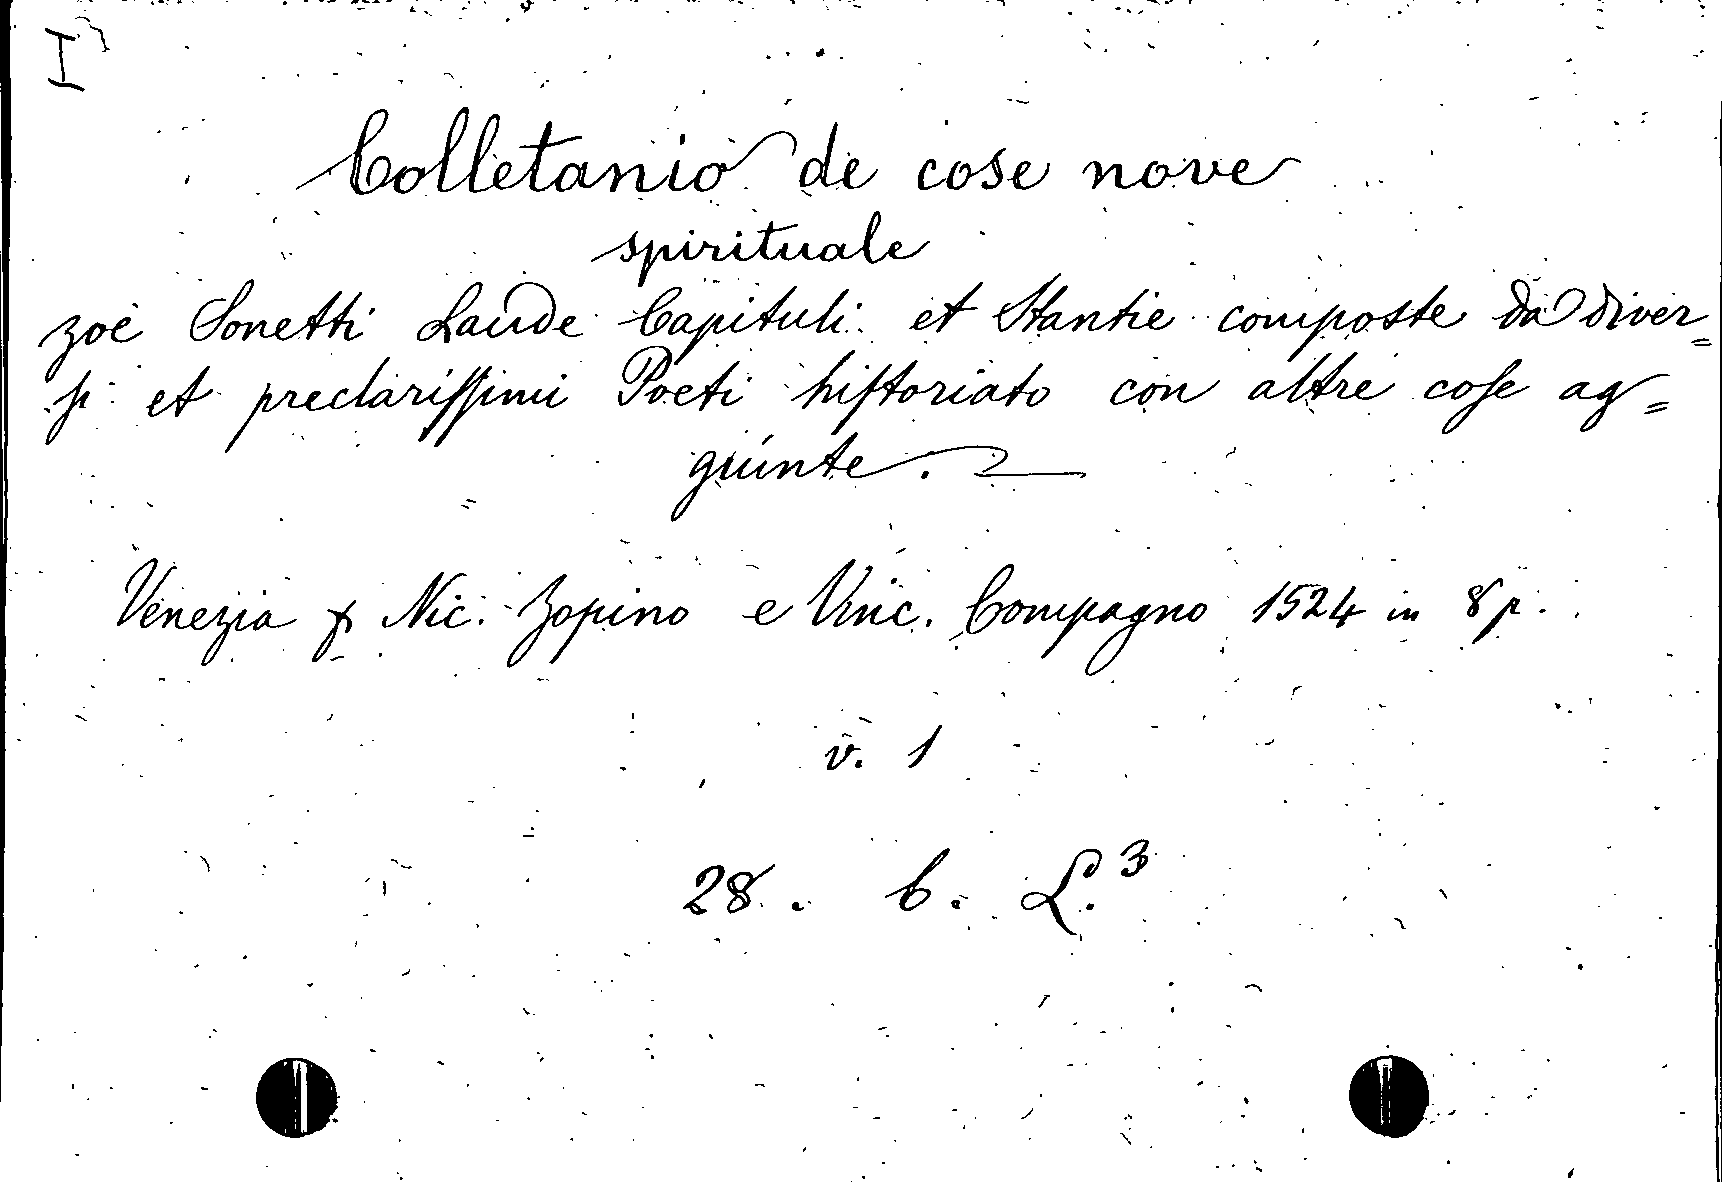 I
Colletanio de cose nove
spirituale
zoe Sonetti Laude Capituli et Stantie composte da diver=
ſi et preclariſſimi Poeti hiſtoriato con altre coſe ag=
giunte.
Venezia p Nic. Zopino e Vinc. Compagno 1524 in 8 p.
v. 1
28. b. L.3